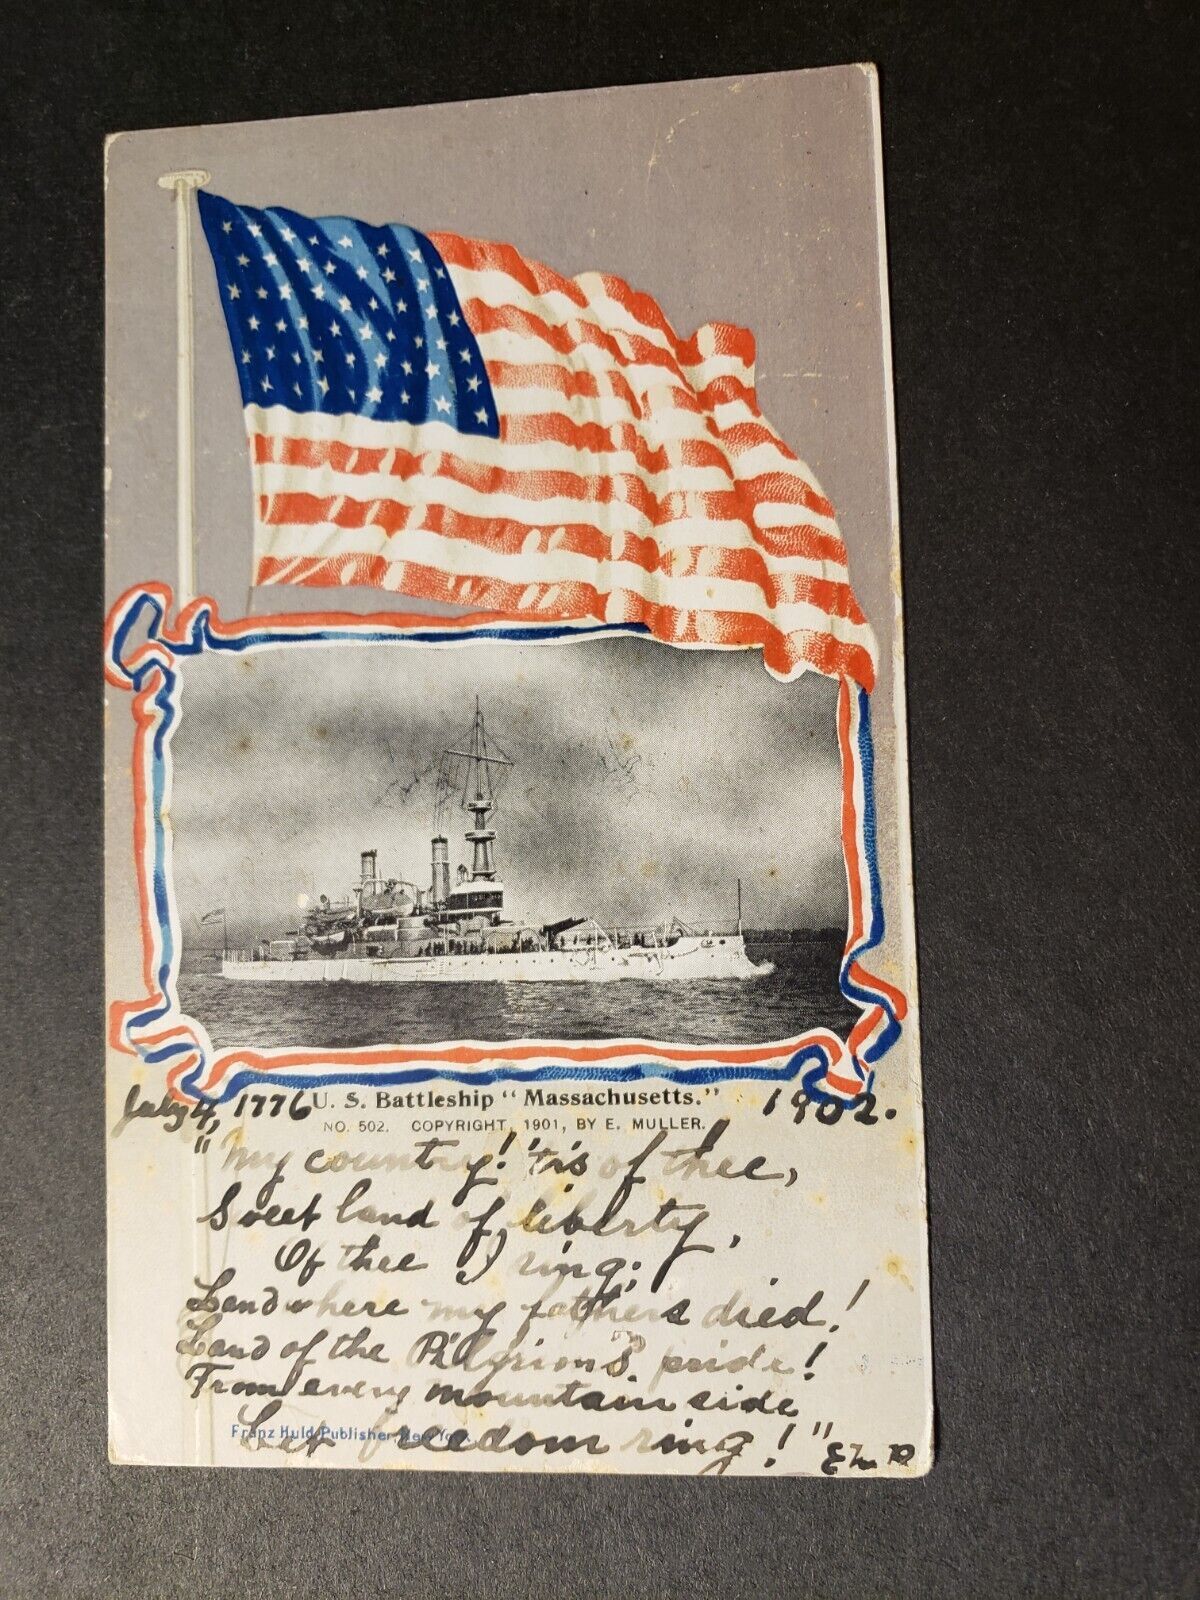 July 4, 1776 U. S. Battleship "Massachusetts." 1902.
NO. 502. COPYRIGHT, 1901, BY E. MULLER.
"My country! 'tis of thee,
Sweet land of liberty,
Of thee I sing;
Land where my fathers died!
Land of the Pilgrim's pride!
From every mountain side
Let freedom ring!"
Franz Huld Publisher, New York.